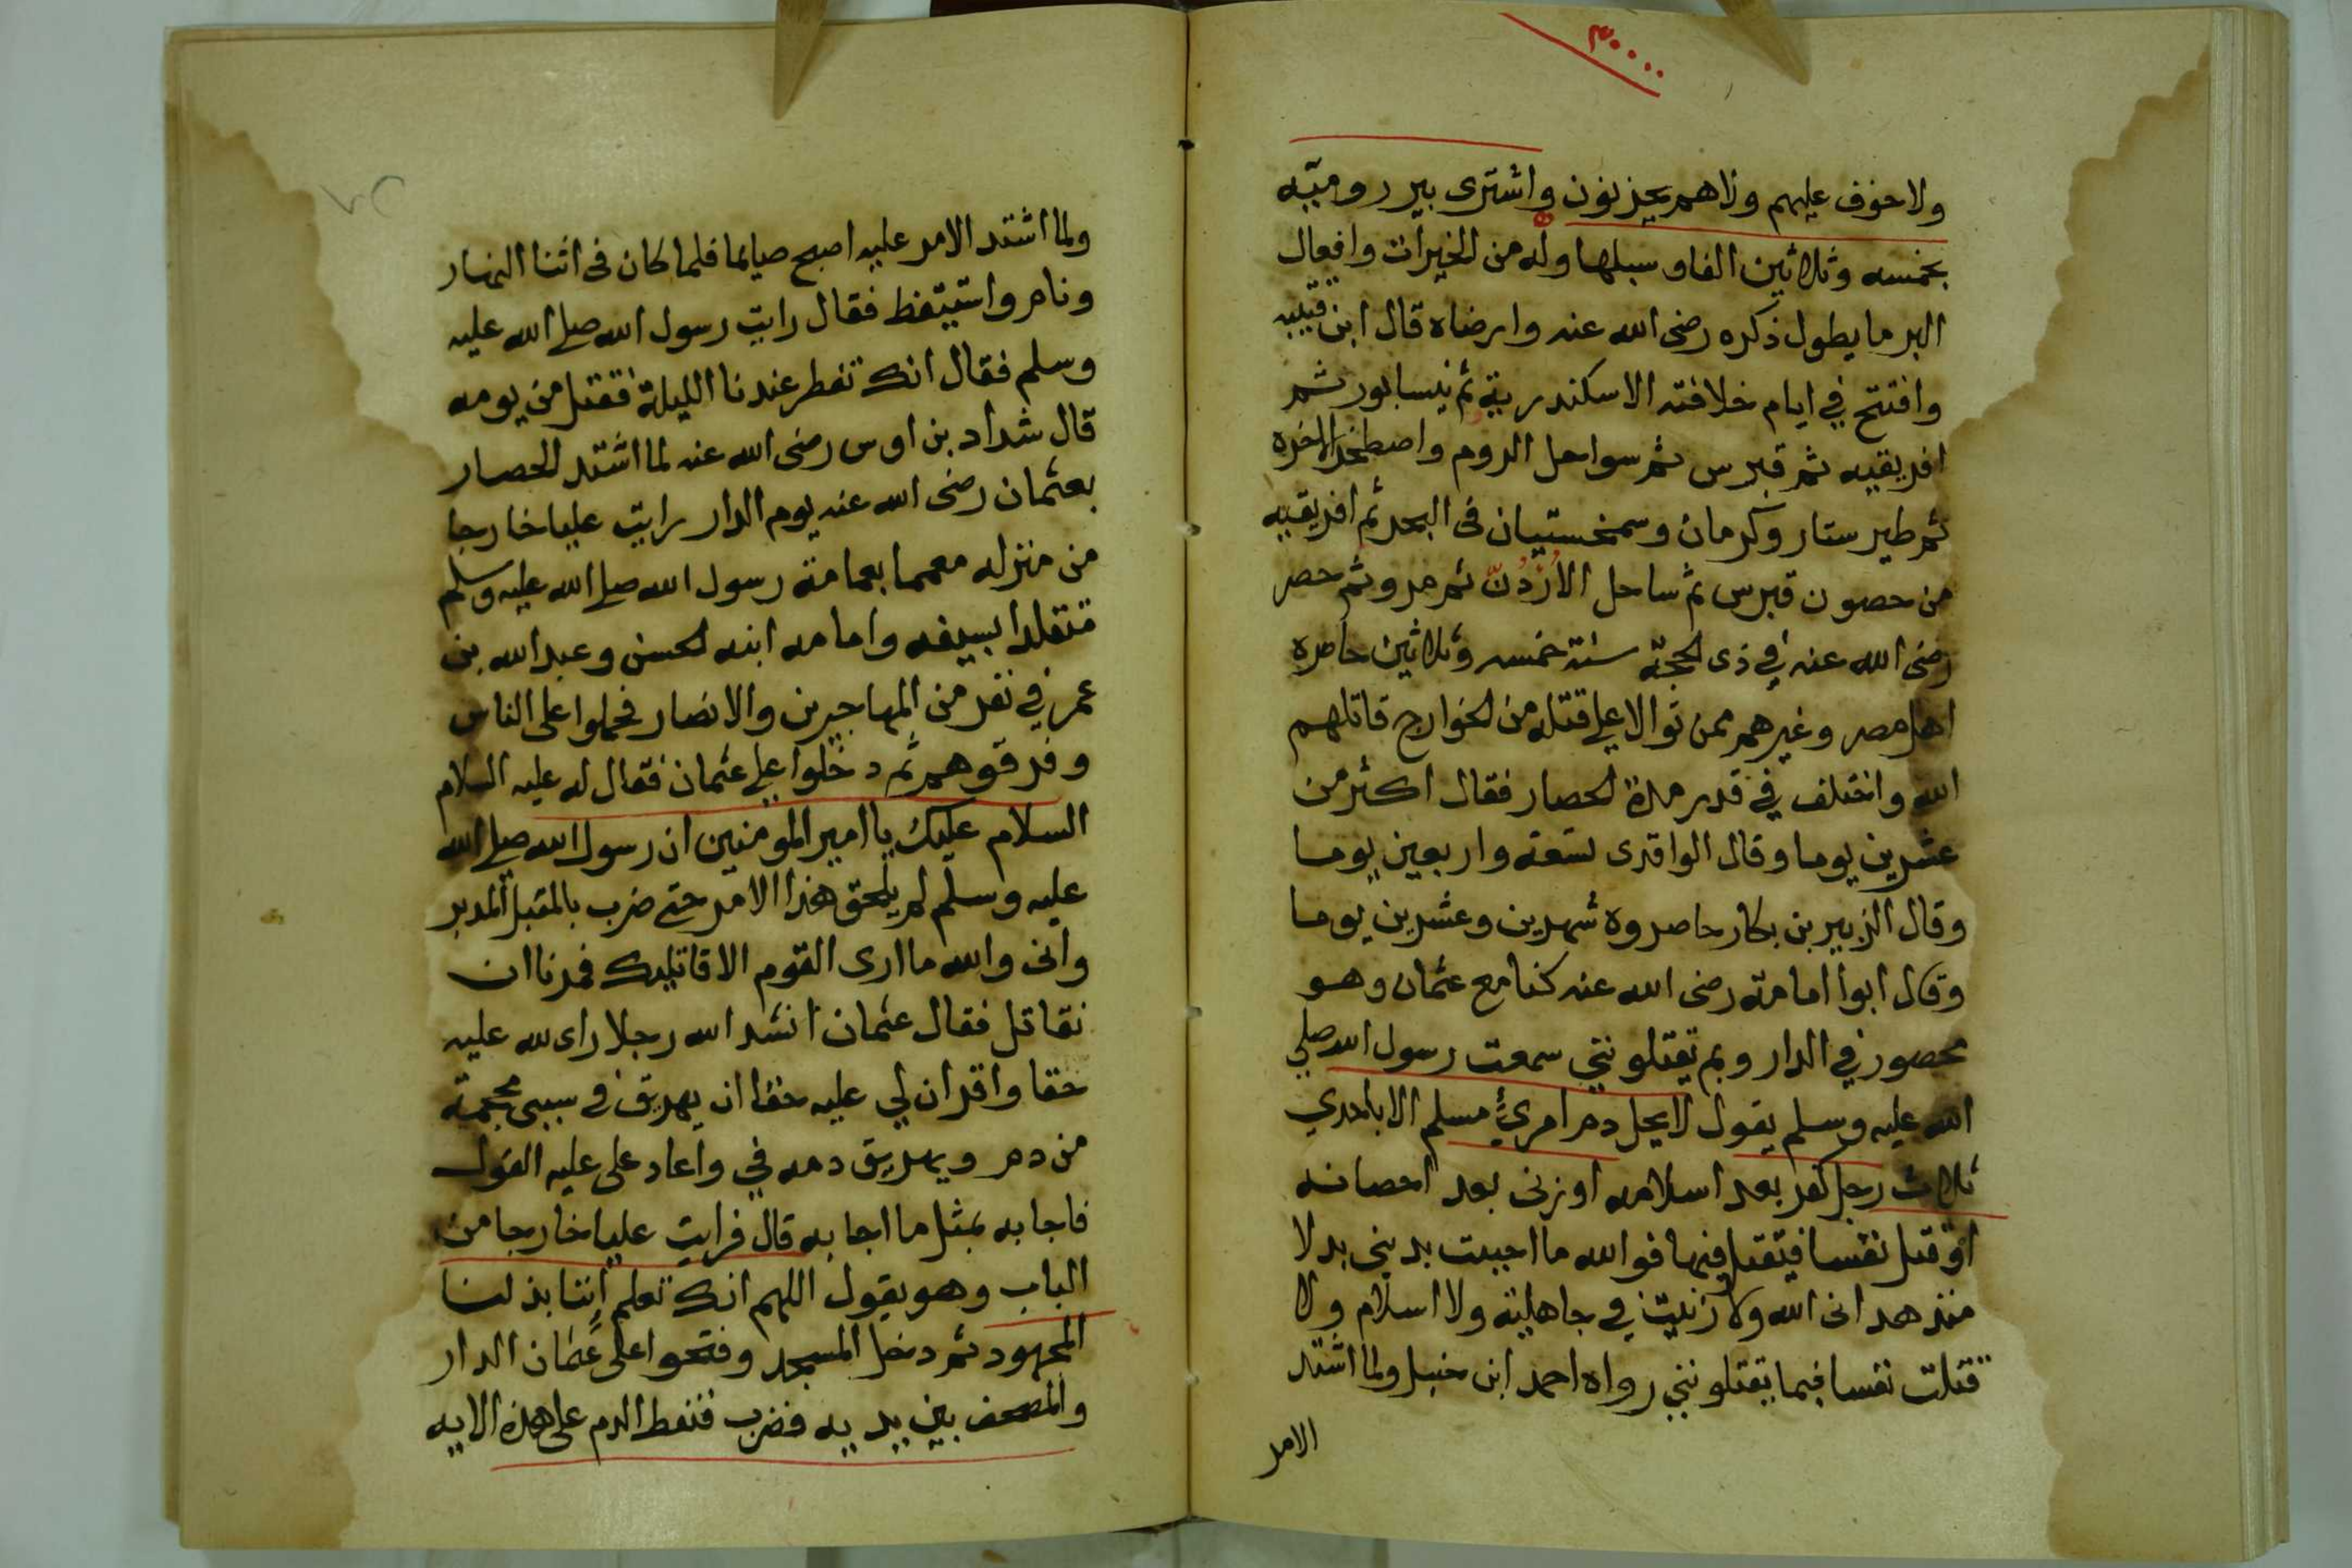 ٣٠٠٠٠
ولا خوف عليهم ولاهم يحزنون واشترى بير روميّه
بخمسه وثلاثين الفاو سبلها وله من الخيرات وافعال
البر ما يطول ذكره رضى الله عنه وارضاه قال ابن قتيبه
وافتتح في ايام خلافته الاسكندرية ثم نيسابور ثم
افريقيه ثم قبرس ثم سواحل الروم واصطخر الاخره
ثم طبرستار وكرمان وسمخستيان فى البحر ثم افريقيه
من حصون قبرس ثم ساحل الاُرْدُنّ ثم مرو ثم حصر
رضى الله عنه في ذى الحجة سنة خمسه وثلاثين حاصره
اهل مصر وغيرهم ممن توالا على قتله من الخوارج قاتلهم
الله واختلف في قدر مدة الحصار فقال اكثر من
عشرين يوما وقال الواقدى تسعه واربعين يوما
وقال الزبير بن بكار حاصروه شهرين وعشرين يوما
وقال ابوا امامة رضى الله عنه كنا مع عثمان وهو
محصور في الدار وبم تقتلونني سمعت رسول الله صلى
الله عليه وسلم يقول لا يحل دم امرئ مسلم الا باحدي
ثلاث رجل كفر بعد اسلامه او زنى بعد احصانه
او قتل نفسا فيقتل فيها فوالله ما احببت بديني بدلا
منذ هدانى الله ولا زنيت في جاهلية ولا اسلام ولا
قتلت نفسا فيما يقتلونني رواه احمد ابن حنبل ولما اشتد
الامر
ولما اشتد الامر عليه اصبح صيائما فلما كان فى اثنا النهار
ونام واستيقظ فقال رايت رسول الله صلى الله عليه
وسلم فقال انك تفطر عندنا الليلة فقتل من يومه
قال شداد بن اوس رضى الله عنه لما اشتد الحصار
بعثمان رضى الله عنه يوم الدار رايت عليا خارجا
من منزله معمما بعمامة رسول الله صلى الله عليه وسلم
متقلدا بسيفه وامامه ابنه الحسن وعبد الله بن
عمر في نفر من المهاجرين والانصار فحملوا على الناس
وفرقوهم ثم دخلوا على عثمان فقال له عليه السلام
السلام عليك يا امير المومنين ان رسول الله صلى الله
عليه وسلم لم يلحق هذا الامر حتى ضرب بالمقبل المدبر
وانى والله ما ارى القوم الا قاتليك فمرنا ان
نقاتل فقال عثمان انشد الله رجلا راى لله عليه
حقا واقر ان لي عليه حقا ان يهريق في سببى محجمة
من دم ويهريق دمه في واعاد على عليه القول
فاجابه بمثل ما اجابه قال فرايت عليا خارجا من
الباب وهو يقول اللهم انك تعلم اننا بذلنا
المجهود ثم دخل المسجد وفتحوا على عثمان الدار
والمصحف بين يديه فضرب فنفط الدم على هذه الايه